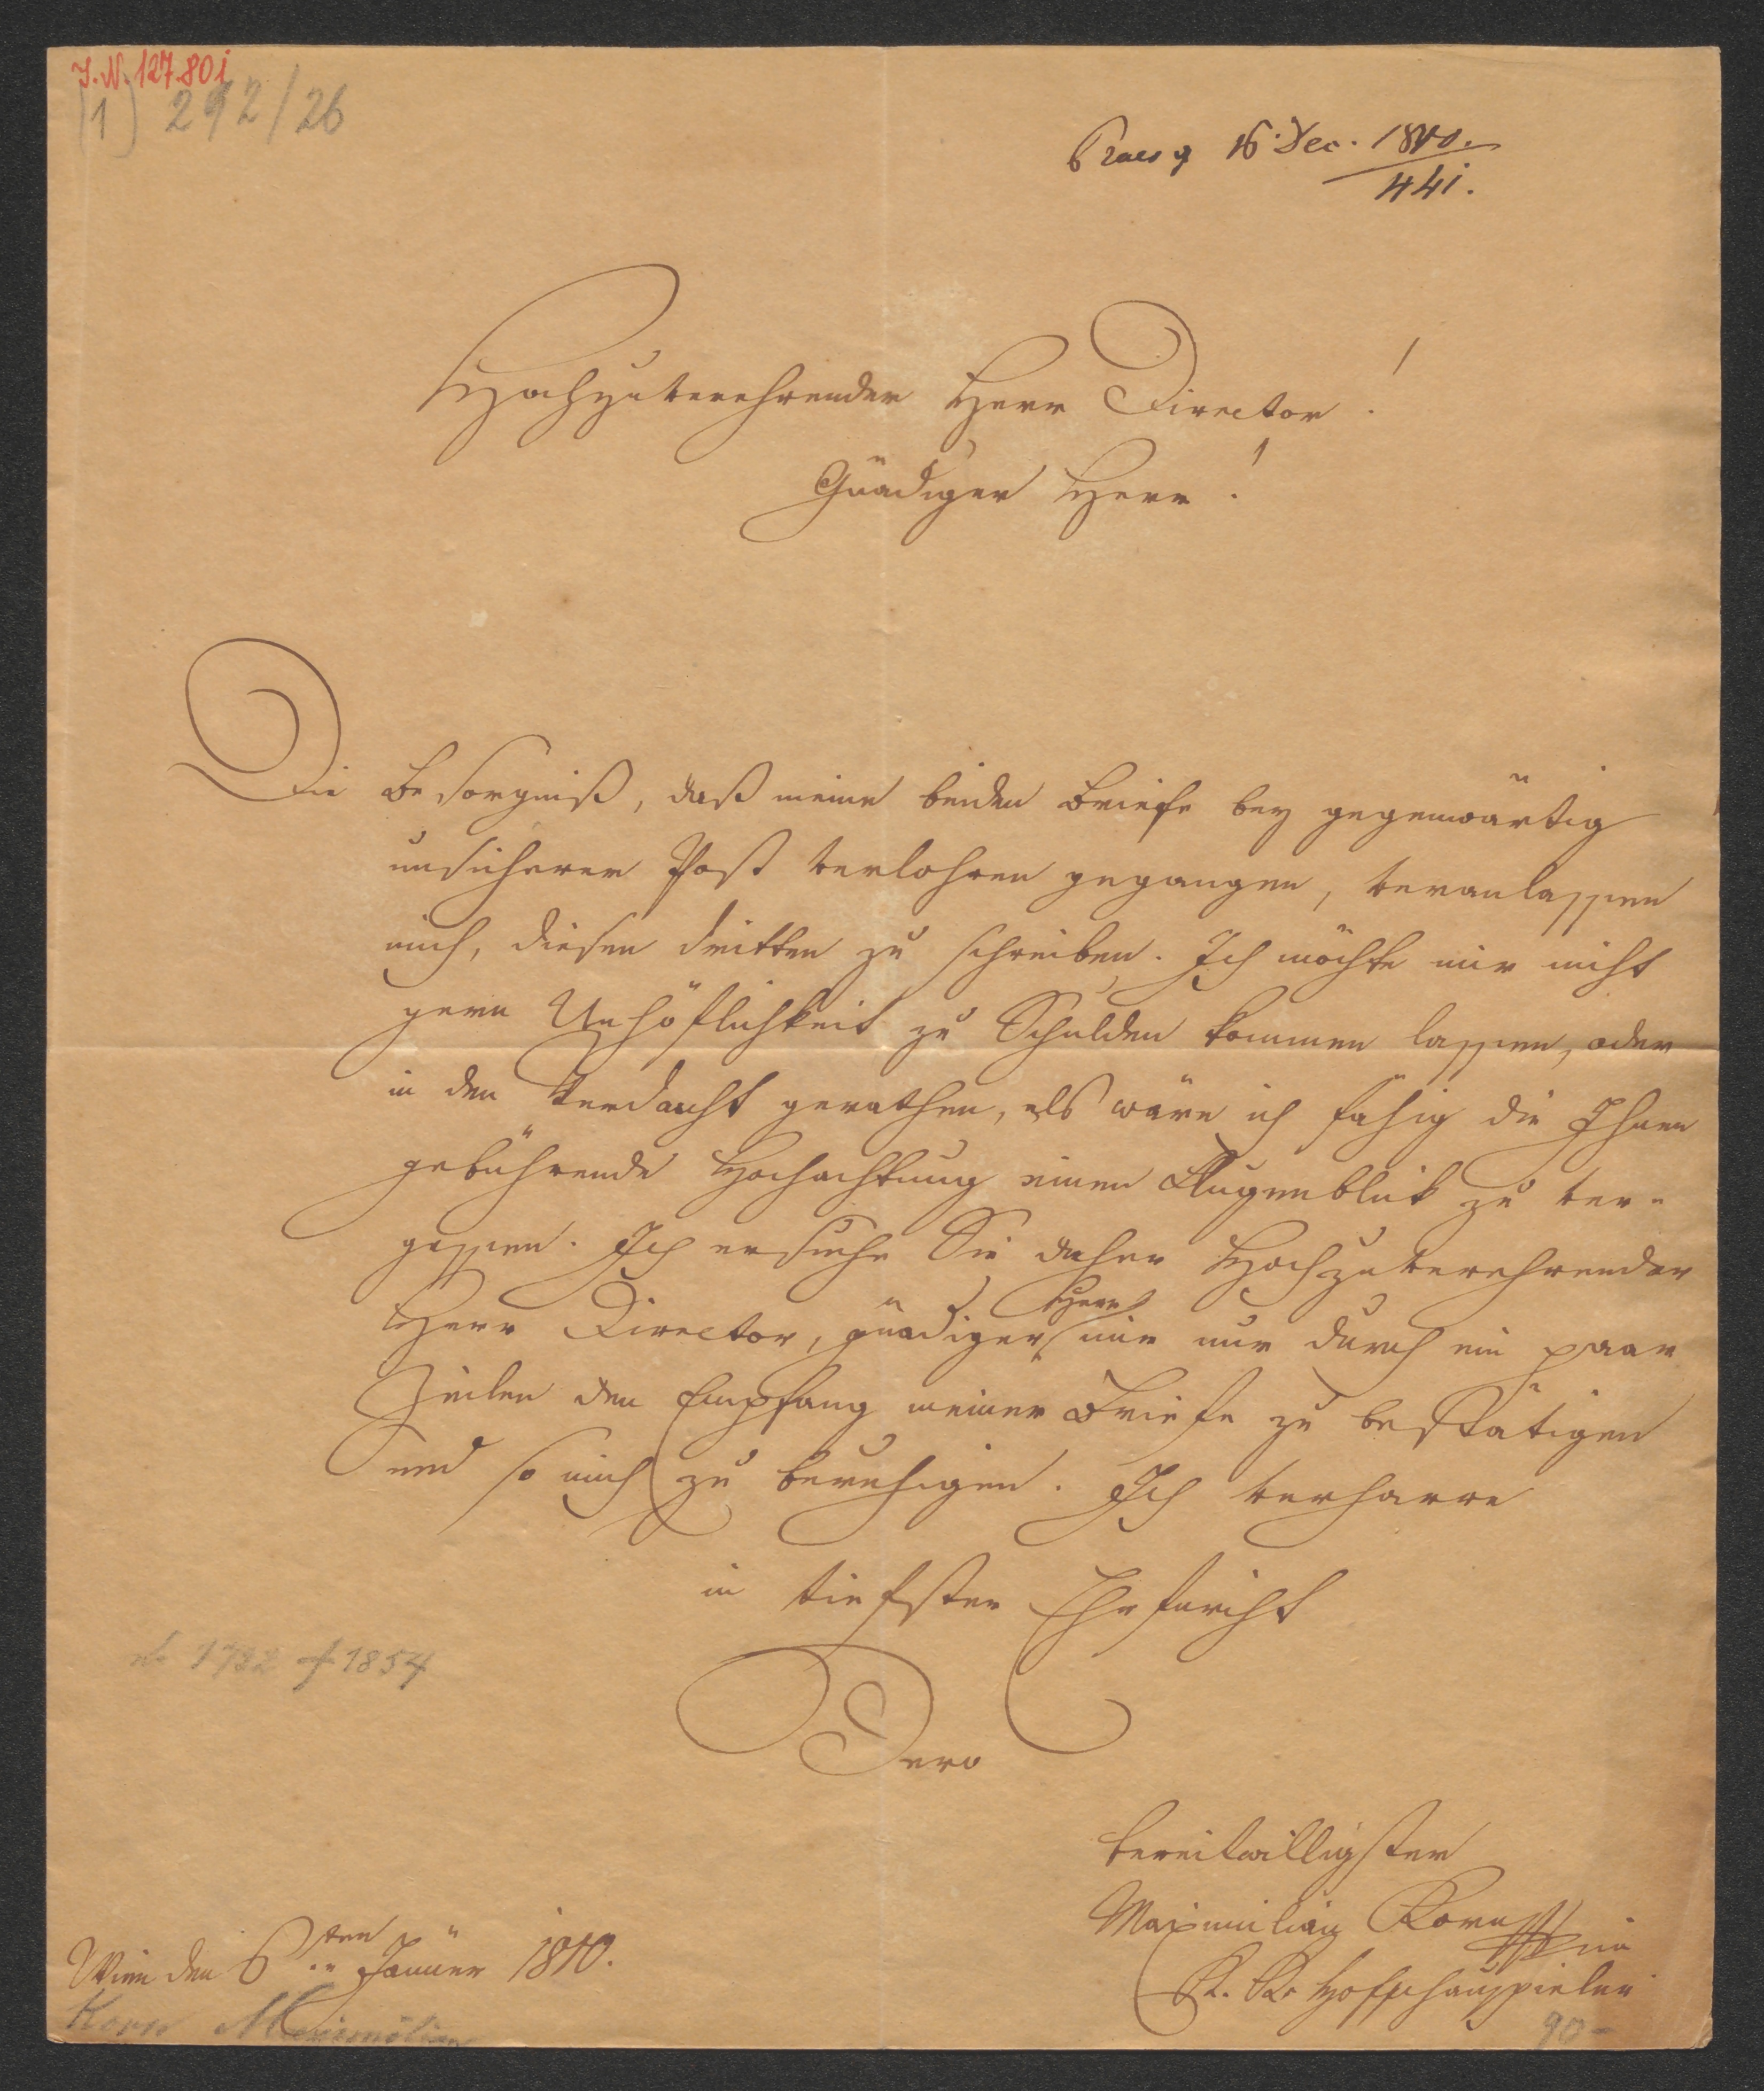 I. N. 127.801
(1) 292/26
Praes 16 Dec. 1810.
441.
Hochzuverehrender Herr Director!
Gnädiger Herr!
Die Besorgniß, daß meine beiden Briefe bey gegenwärtig
unsicherer Post verlohren gegangen, veranlassen
mich, diesen dritten zu schreiben. Ich möchte mir nicht
gern Unhöflichkeit zu Schulden kommen lassen, oder
in den Verdacht gerathen, als wäre ich fähig die Ihnen
gebührende Hochachtung einen Augenblick zu ver-
gessen. Ich ersuche Sie daher Hochzuverehrender
Herr Director, gnädiger Herr mir nur durch ein paar
Zeilen den Empfang meiner Briefe zu bestätigen
und so mich zu beruhigen. Ich verharre
in tiefster Ehrfurcht
Dero
bereitwilligster
Maximilian Korn
K. K. Hofschauspieler
Wien den 6ten Jänner 1810.
1782 † 1854
Korn Maximilian
90-